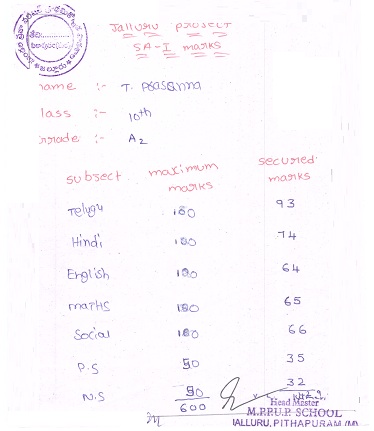 Jalluru project
SA-I marks
name :- T. Prasanna
lass :- 10th
Grade :- A2
subject maximum marks secured marks
Telugu 100 93
Hindi 100 74
English 100 64
maths 100 65
Social 100 66
P.S 50 35
N.S 50 32
600
Head Master
M.P.U.P. SCHOOL
JALLURU, PITHAPURAM (M)